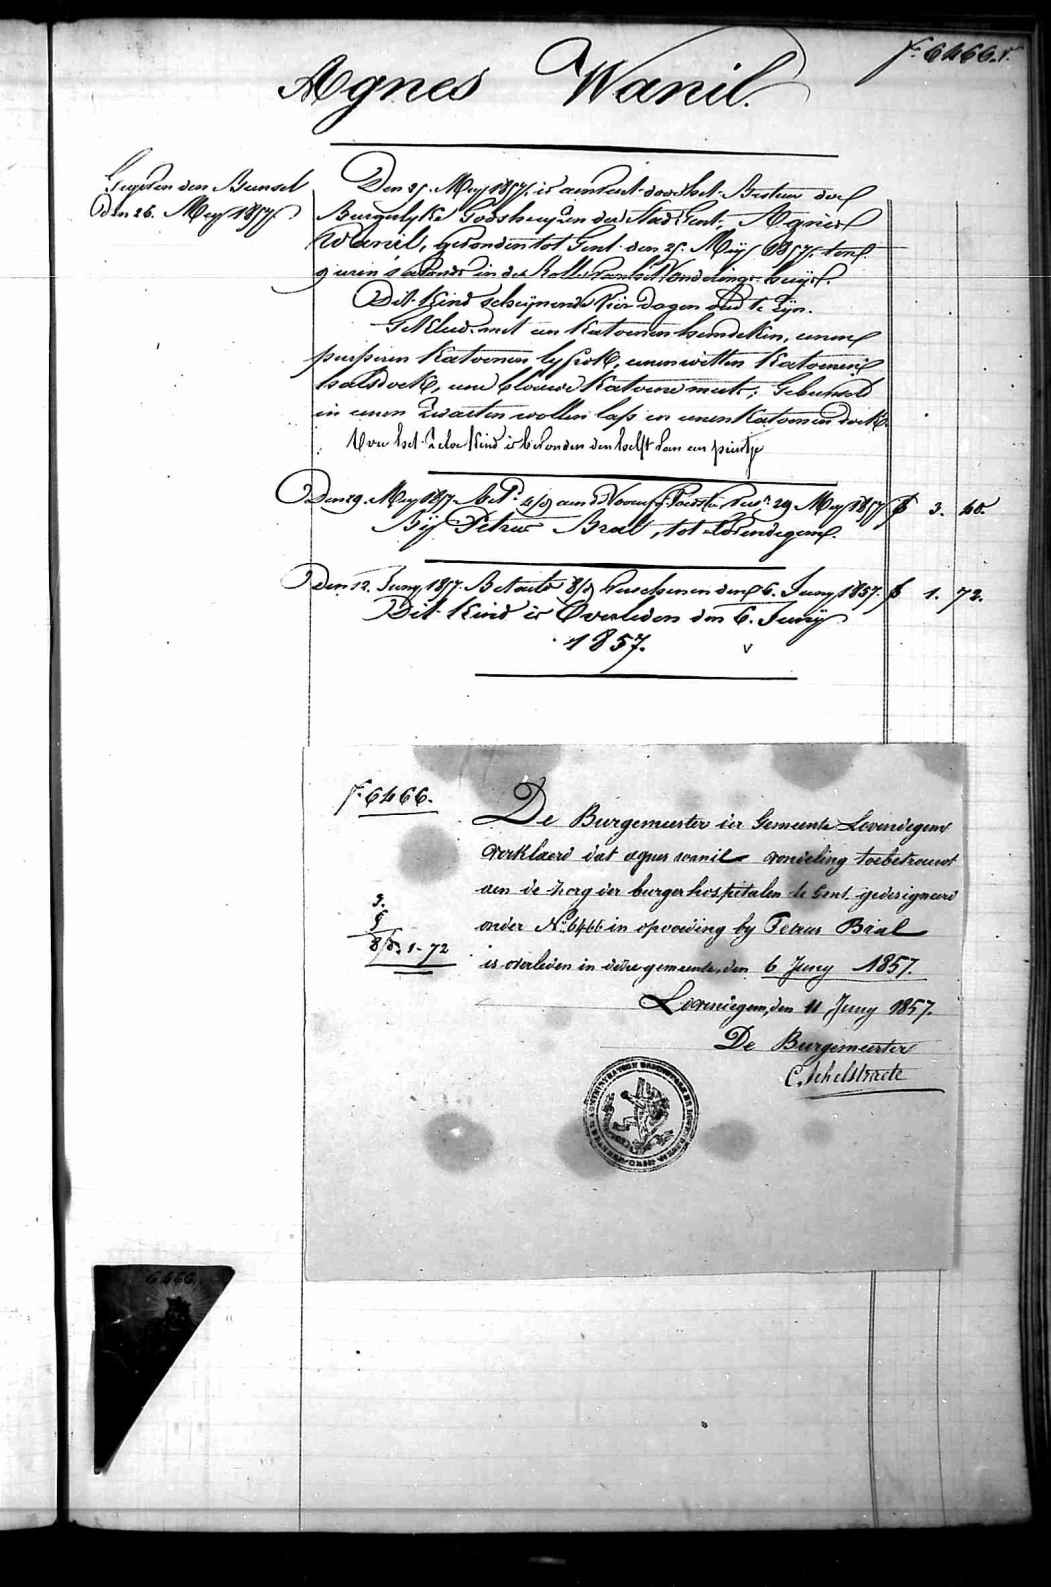 f° 6466.
Agnes Wanil.
Gegeven den Bunsel
den 26. Meij 1857.
Den 25. Meij 1857. is aenveert door het Bestuer der
Burgelijke Godshuijzen der Stad Gent, Agnes
Wanil, gevonden tot Gent den 25. Meij 1857. ten
9 uren s'avonds in de rolle van het Vondelings huijs.
Dit Kind scheijnende vier dagen oud te zijn.
Gekleed met een Katoenen hemdeken, eenen
purperen Katoenen lyfrok, eenen witten Katoenen
halsdoek, eene blauwe Katoene muts; Gebunseld
in eenen zwarten wollen lap en eenen Katoenen doek.
Voor het zelve Kind is bevonden den helft van een printje
Den 29. Meij 1857. 29 Meij 1857 3. 40.
Bij Petrus Bral, tot Lovendegem.
Den 12. Junij 1857. Betaeld 8/d 6. Junij 1857. 1. 72.
Dit Kind is Overleden den 6. Junij
1857.
f° 6466.
De Burgemeester der Gemeente Lovendegem
verklaerd dat agnes wanil vondeling toebetrouwt
aen de zorg der burger hospitalen te Gent, gedesigneerd
onder N° 6466 in opvoeding by Petrus Bral
is overleden in deze gemeente, den 6 Juny 1857.
3.
5
8/d 1-72
Lovendegem, den 11 Juny 1857.
De Burgemeester
C. Schelstraete
6466.